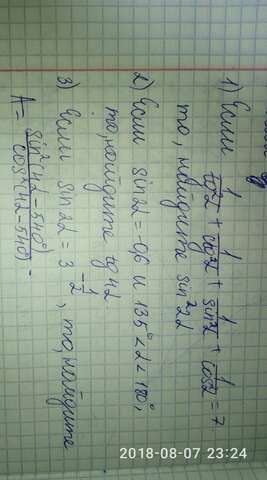 1) Если 1/tg²α + 1/ctg²α + 1/sin²α + 1/cos²α = 7
то, найдите sin²2α
2) Если sin2α = -0,6 и 135° < α < 180°,
то, найдите tg4α
3) Если sin2α = 3^(-1/2), то, найдите
A = sin²(4α-540°)/cos²(4α-540°) -
2018-08-07 23:24